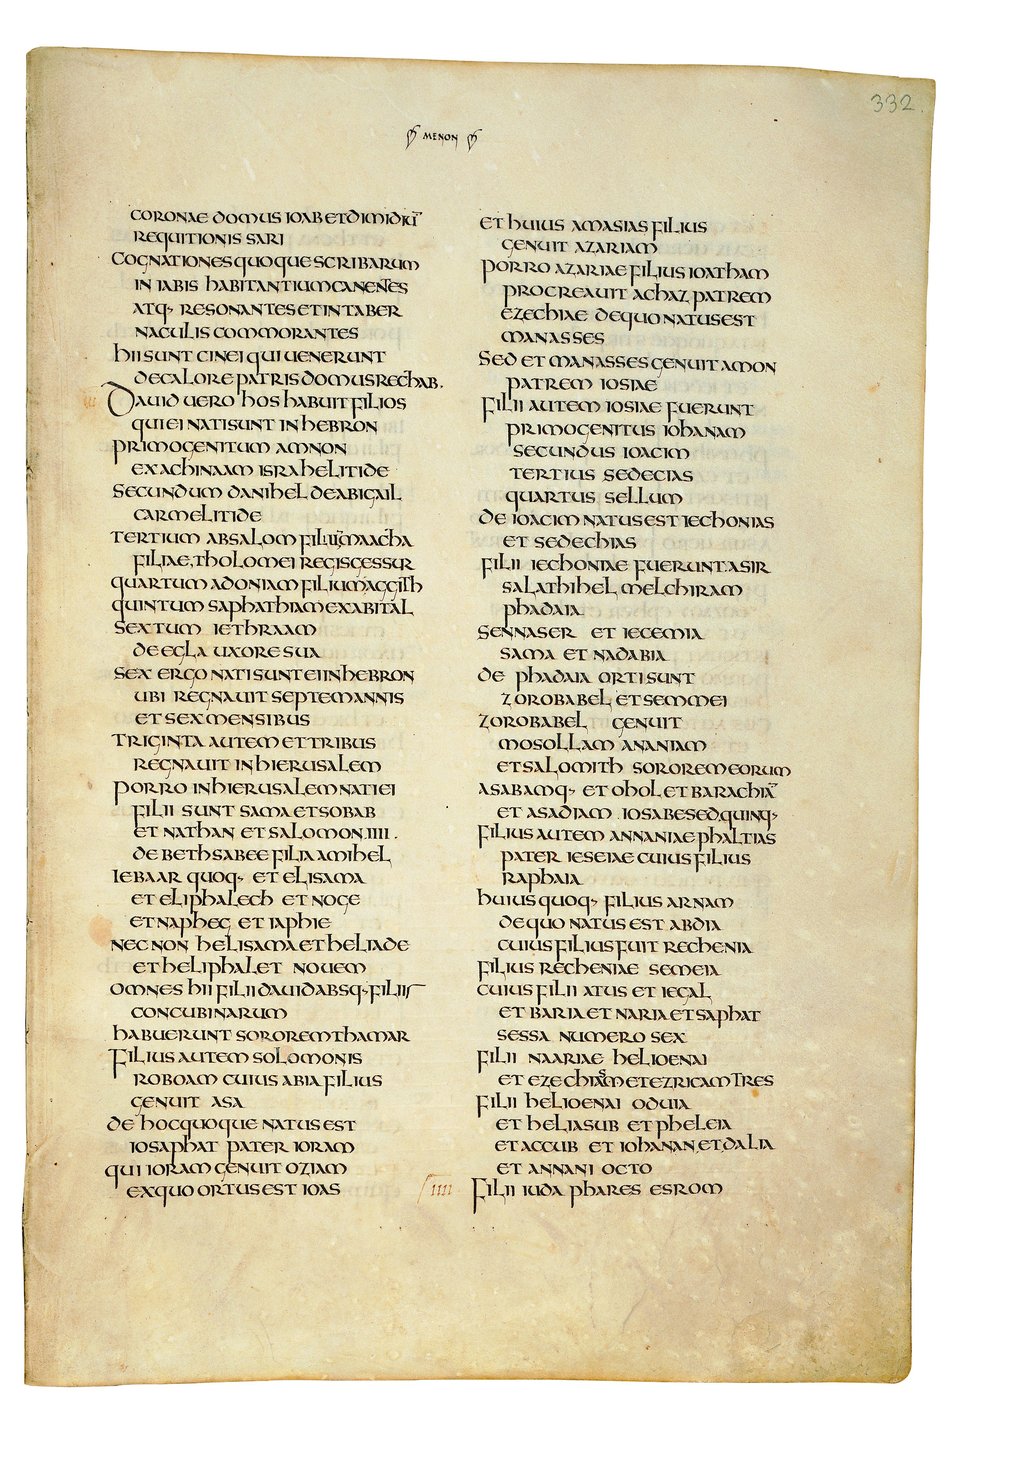 332
MENON
CORONAE DOMUS IOAB ET DIMIDIŪ
REQUITIONIS SARI
COGNATIONES QUOQUE SCRIBARUM
IN IABIS HABITANTIUM CANENTES
ATQ· RESONANTES ET IN TABER
NACULIS COMMORANTES
HII SUNT CINEI QUI UENERUNT
DE CALORE PATRIS DOMUS RECHAB.
DAUID UERO HOS HABUIT FILIOS
QUI EI NATI SUNT IN HEBRON
PRIMOGENITUM AMNON
EX ACHINAAM ISRAHELITIDE
SECUNDUM DANIHEL DE ABIGAIL
CARMELITIDE
TERTIUM ABSALOM FILIUM MAACHA
FILIAE THOLOMEI REGIS GESSUR
QUARTUM ADONIAM FILIUM AGGITH
QUINTUM SAPHATHIAM EX ABITAL
SEXTUM IETHRAAM
DE EGLA UXORE SUA
SEX ERGO NATI SUNT EI IN HEBRON
UBI REGNAUIT SEPTEM ANNIS
ET SEX MENSIBUS
TRIGINTA AUTEM ET TRIBUS
REGNAUIT IN HIERUSALEM
PORRO IN HIERUSALEM NATI EI
FILII SUNT SAMA ET SOBAB
ET NATHAN ET SALOMON.IIII.
DE BETHSABEE FILIA AMIHEL
IEBAAR QUOQ· ET ELISAMA
ET ELIPHALECH ET NOGE
ET NAPHEG ET IAPHIE
NEC NON HELISAMA ET HELIADE
ET HELIPHALET NOUEM
OMNES HII FILII DAUID ABSQ· FILIIS
CONCUBINARUM
HABUERUNT SOROREM THAMAR
FILIUS AUTEM SOLOMONIS
ROBOAM CUIUS ABIA FILIUS
GENUIT ASA
DE HOC QUOQUE NATUS EST
IOSAPHAT PATER IORAM
QUI IORAM GENUIT OZIAM
EX QUO ORTUS EST IOAS
ET HUIUS AMASIAS FILIUS
GENUIT AZARIAM
PORRO AZARIAE FILIUS IOATHAM
PROCREAUIT ACHAZ PATREM
EZECHIAE DE QUO NATUS EST
MANASSES
SED ET MANASSES GENUIT AMON
PATREM IOSIAE
FILII AUTEM IOSIAE FUERUNT
PRIMOGENITUS IOHANAM
SECUNDUS IOACIM
TERTIUS SEDECIAS
QUARTUS SELLUM
DE IOACIM NATUS EST IECHONIAS
ET SEDECHIAS
FILII IECHONIAE FUERUNT ASIR
SALATHIHEL MELCHIRAM
PHADAIA
SENNASER ET IECEMIA
SAMA ET NADABIA
DE PHADAIA ORTI SUNT
ZOROBABEL ET SEMMEI
ZOROBABEL GENUIT
MOSOLLAM ANANIAM
ET SALOMITH SOROREM EORUM
ASABAMQ· ET OHOL ET BARACHIĀ
ET ASADIAM IOSABESED QUINQ·
FILIUS AUTEM ANNANIAE PHALTIAS
PATER IESEIAE CUIUS FILIUS
RAPHAIA
HUIUS QUOQ· FILIUS ARNAM
DE QUO NATUS EST ABDIA
CUIUS FILIUS FUIT RECHENIA
FILIUS RECHENIAE SEMEIA
CUIUS FILII ATUS ET IEGAL
ET BARIA ET NARIA ET SAPHAT
SESSA NUMERO SEX
FILII NAARIAE HELIOENAI
ET EZECHIAS ET EZRICAM TRES
FILII HELIOENAI ODUIA
ET HELIASUB ET PHELEIA
ET ACCUB ET IOHANAN ET DALIA
ET ANNANI OCTO
IIII FILII IUDA PHARES ESROM